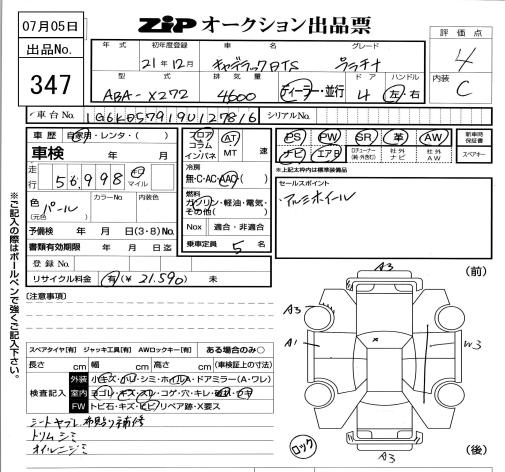 07月05日
ZIP オークション出品票
出品No.
347
評価点
4
内装
C
年式 初年度登録 車名 グレード
21年12月 キャデラックDTS プラチナ
型式 排気量 ドア ハンドル
ABA-X272 4600 ディーラー・並行 4 左・右
車台No. 1G6KD57919U127816 シリアルNo.
車歴 自家用・レンタ・( )
フロア コラム インパネ AT MT 速
PS PW SR 革 AW
ナビ エアB
新車時保証書
スペアキー
※上記太枠内は標準装備品
車検 年 月
走行 56,998 km マイル
冷房
無・C・AC・AAC
燃料
ガソリン・軽油・電気・その他( )
セールスポイント
アルミホイール
色(元色) パール カラーNo. 内装色
予備検 年 月 日(3・8)
Nox 適合・非適合
書類有効期限 年 月 日迄
乗車定員 5名
登録No.
リサイクル料金 有(¥ 21.590) 未
【注意事項】
スペアタイヤ[有] ジャッキ工具[有] AWロックキー[有] ある場合のみ○
長さ cm 幅 cm 高さ cm (車検証上の寸法)
検査記入
外装 小キズ・小凹・シミ・ホイルA・ドアミラー(A・ワレ)
室内 ヨゴレ・キズ・スレ・コゲ・穴・キレ
FW トビ石・キズ・ヒビ・リペア跡・X要ス
シートヤブレ
トリムシミ
オイルニジミ
※ご記入の際はボールペンで強くご記入下さい。
(前)
A3
A3
A1
W3
A3
ロック
(後)